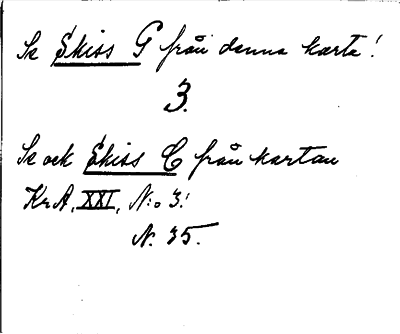 Se Skiss G från denna karta!
3.
Se ock Skiss C från kartan
KrA, XXI, N:o 3!
N. 35.